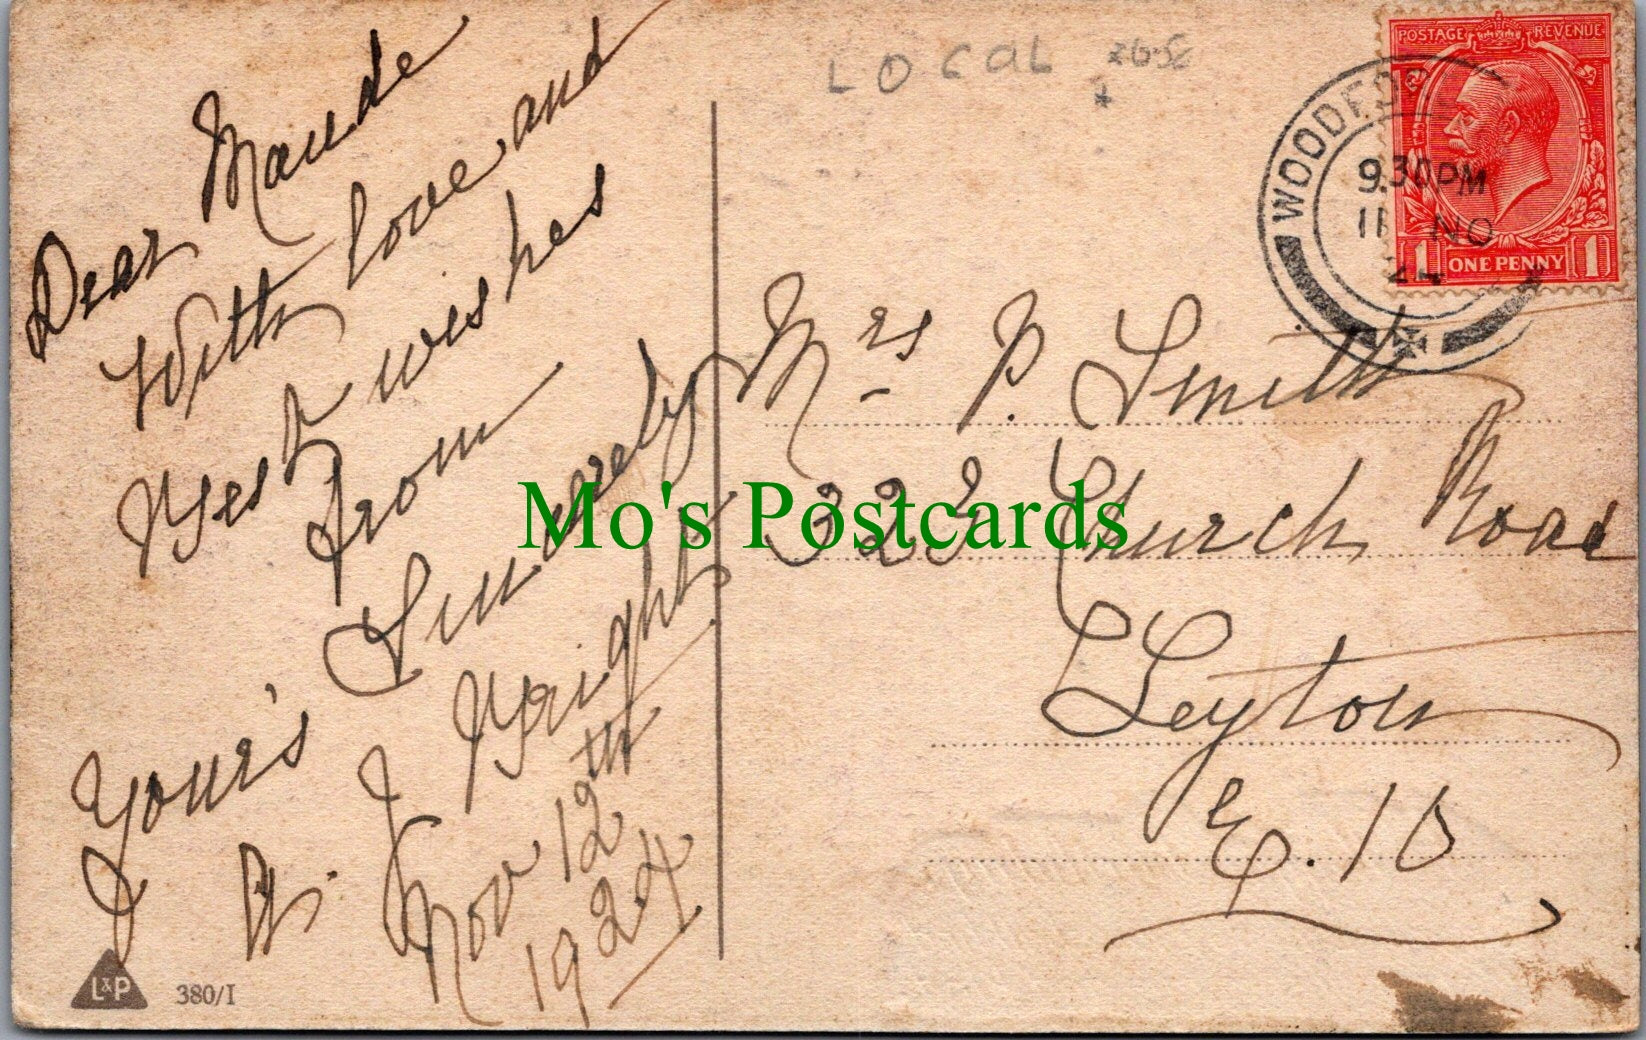 Dear Maude
With love and
Best wishes
from
Your's Sincerely
J Wright
Nov 12th
1924
L&P
380/I
LOCAL
POSTAGE REVENUE
1 ONE PENNY 1
WOODFO
9.30PM
11 NO
24
Mrs P. Smith
323 Church Road
Leyton
E.10
Mo's Postcards